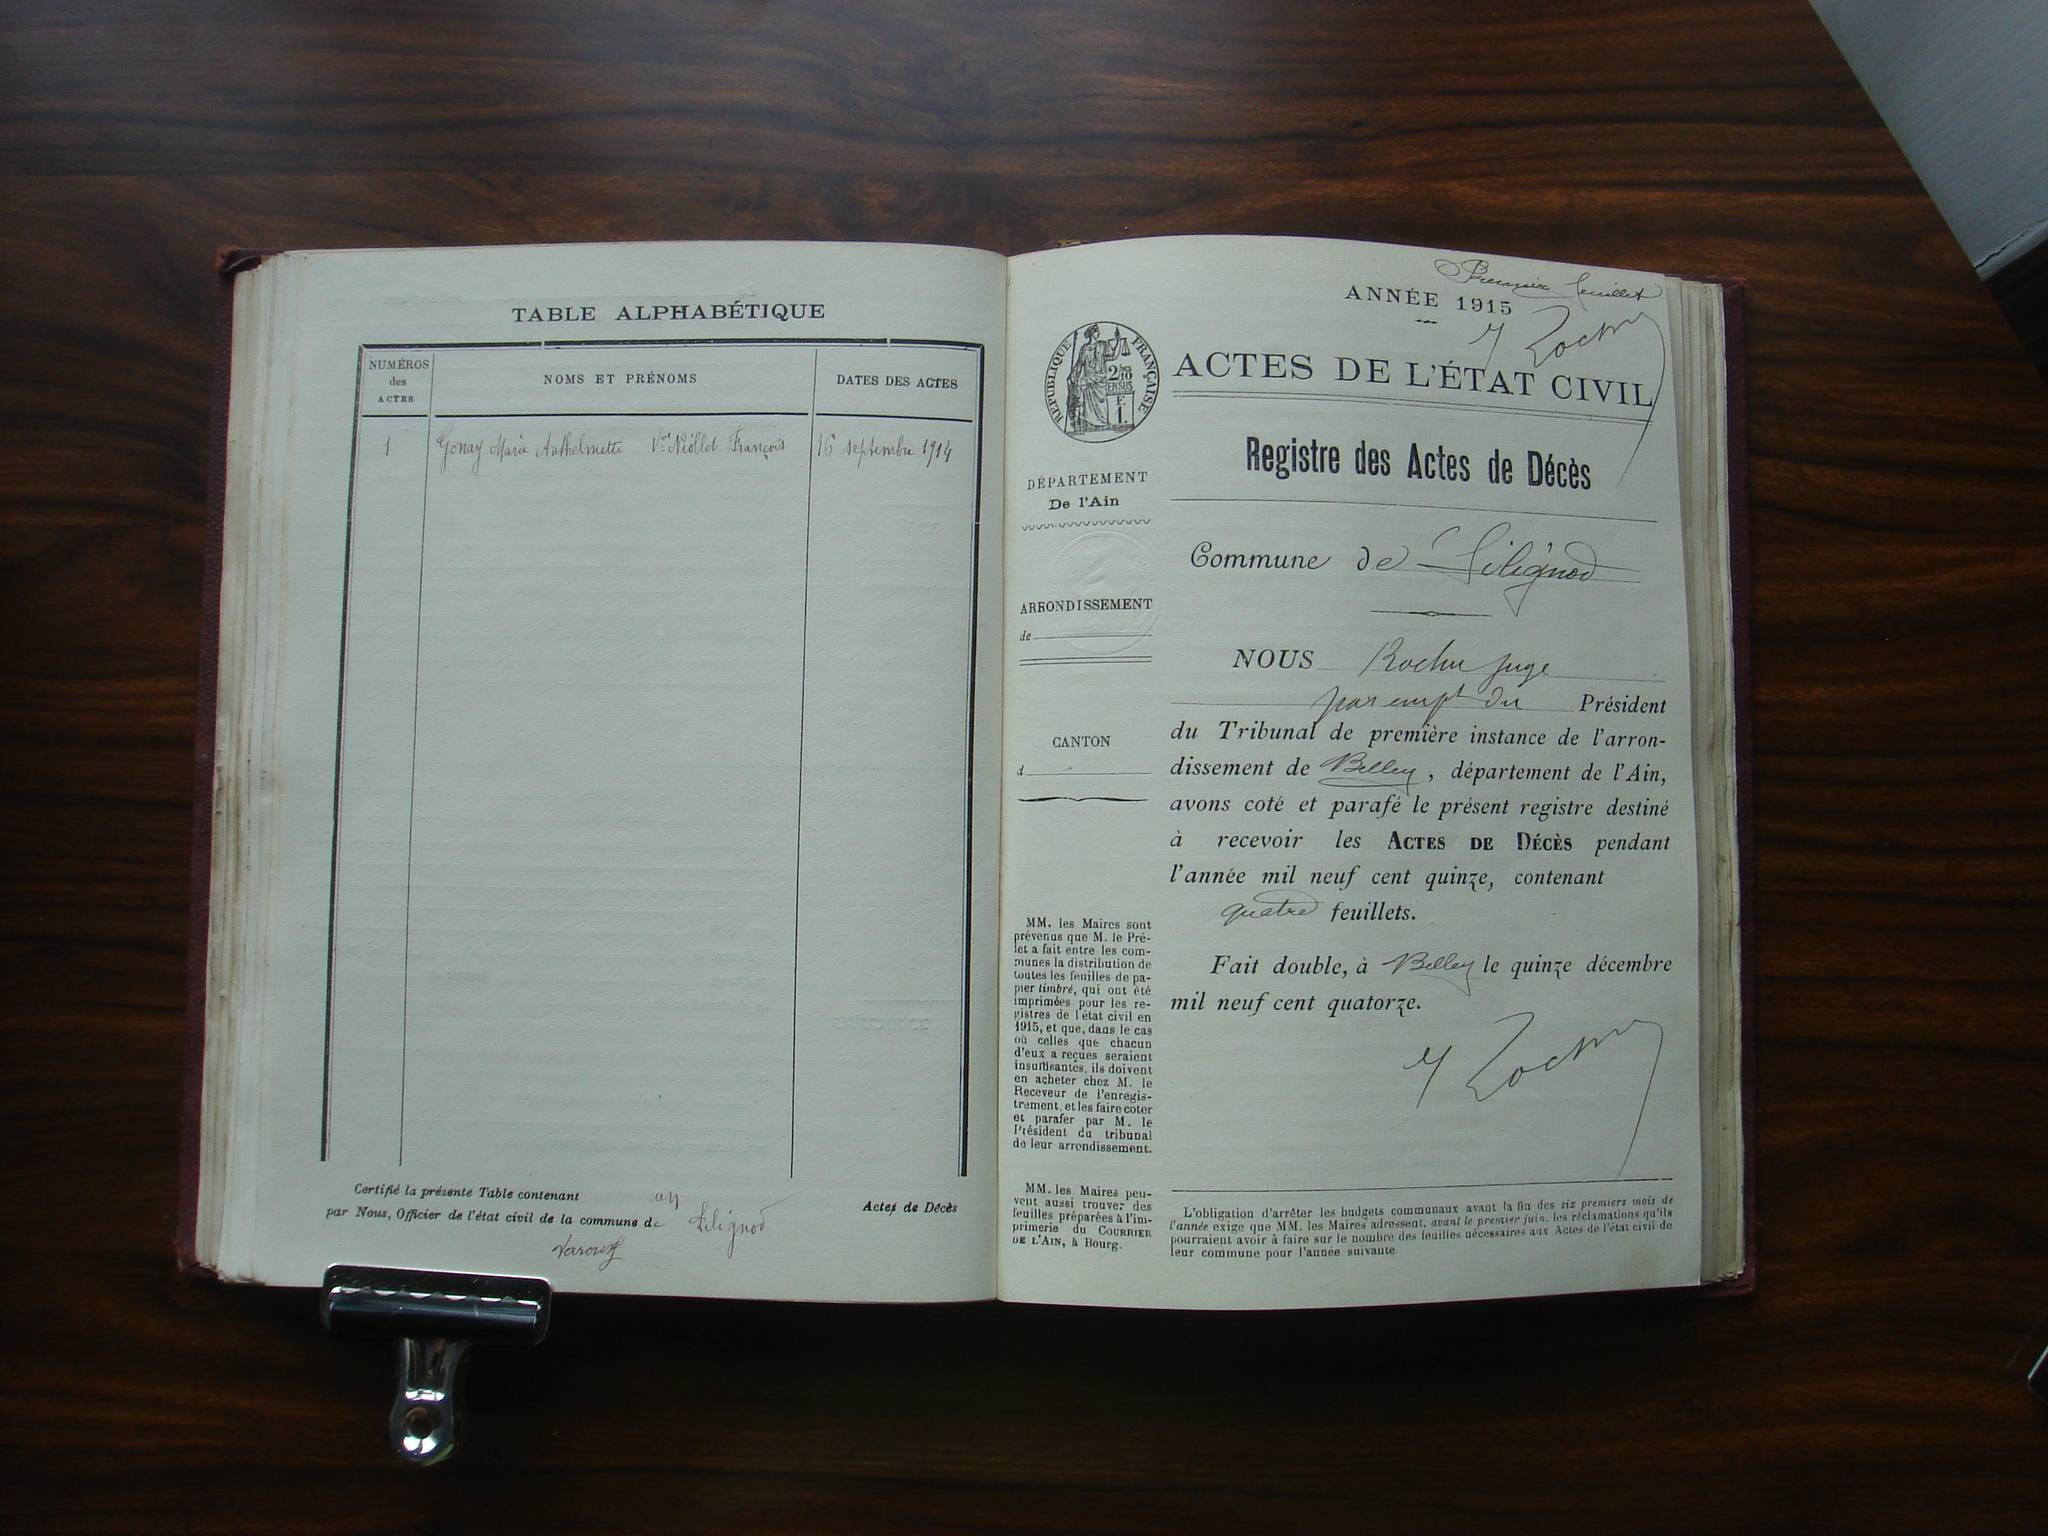 TABLE ALPHABÉTIQUE
NUMÉROS
des
ACTES
NOMS ET PRÉNOMS
DATES DES ACTES
1 Gonay Marie Anthelmette Vve Niollet François 16 septembre 1914
Certifié la présente Table contenant un Actes de Décès
par Nous, Officier de l'état civil de la commune de Lilignod
Premier feuillet
ANNÉE 1915
RÉPUBLIQUE FRANÇAISE
2/10
EN SUS
ACTES DE L'ÉTAT CIVIL
Registre des Actes de Décès
DÉPARTEMENT
De l'Ain
Commune de Lilignod
ARRONDISSEMENT
de
CANTON
d
NOUS Rochu Juge
par empt du Président
du Tribunal de première instance de l'arron-
dissement de Belley, département de l'Ain,
avons coté et parafé le présent registre destiné
à recevoir les ACTES DE DÉCÈS pendant
l'année mil neuf cent quinze, contenant
quatre feuillets.
Fait double, à Belley le quinze décembre
mil neuf cent quatorze.
MM. les Maires sont
prévenus que M. le Pré-
fet a fait entre les com-
munes la distribution de
toutes les feuilles de pa-
pier timbré, qui ont été
imprimées pour les re-
gistres de l'état civil en
1915, et que, dans le cas
où celles que chacun
d'eux a reçues seraient
insuffisantes, ils doivent
en acheter chez M. le
Receveur de l'enregis-
trement, et les faire coter
et parafer par M. le
Président du tribunal
de leur arrondissement.
MM. les Maires peu-
vent aussi trouver des
feuilles préparées à l'im-
primerie du COURRIER
DE L'AIN, à Bourg.
L'obligation d'arrêter les budgets communaux avant la fin des six premiers mois de
l'année exige que MM. les Maires adressent, avant le premier juin, les réclamations qu'ils
pourraient avoir à faire sur le nombre des feuilles nécessaires aux Actes de l'état civil de
leur commune pour l'année suivante